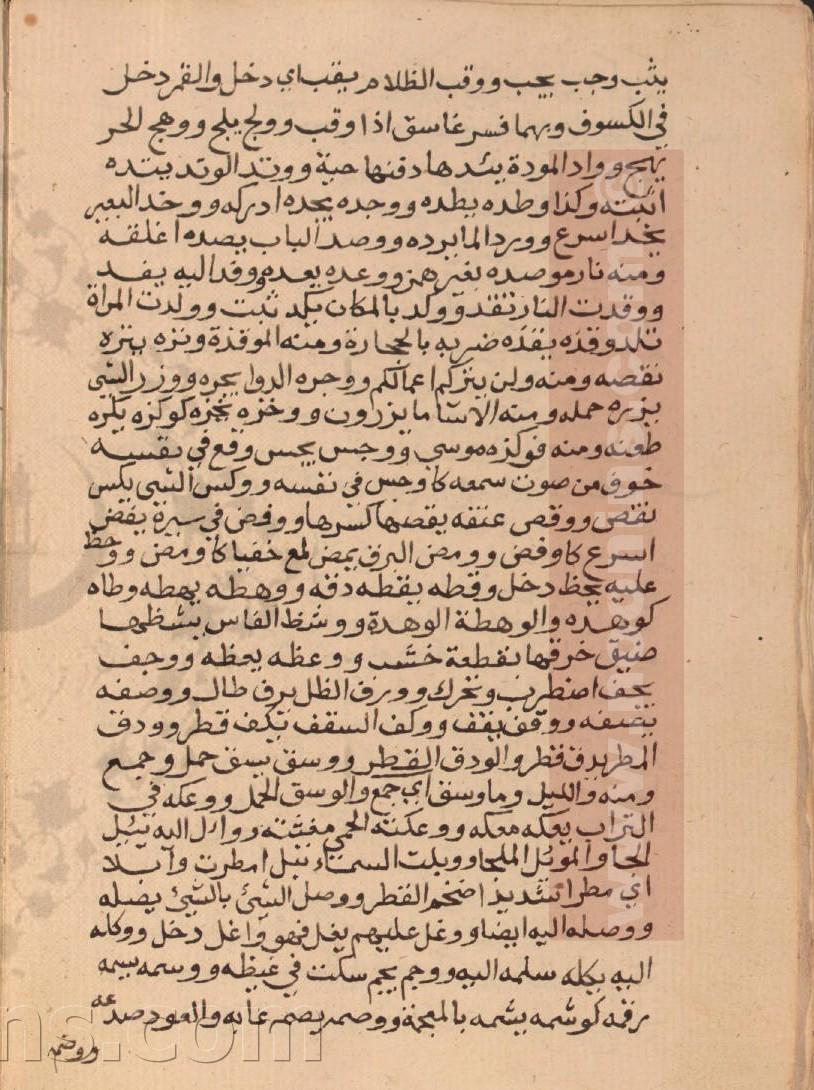 يثب وجب يجب ووقب الظلام يقب اي دخل والقمر دخل
في الكسوف وبهما فسر غاسق اذا وقب وولج يلج ووهج الحر
يهج وواد المودة يئدها دفنها حية ووتد الوتد يتده
اثبته وكذا وطده يطده ووجده يجده ادركه ووخد البعير
يخد اسرع وورد الما يرده ووصد الباب يصده اغلقه
ومنه نار موصده بغير همز ووعده يعده ووفد اليه يفد
ووقدت النار تقد ووكد بالمكان يكد ثبت وولدت المراة
تلد وقذه يقذه ضربه بالحجارة ومنه الموقذة وتره يتره
نقصه ومنه ولن يتركم اعمالكم ووجره الدوا يجره ووزر الشي
يزره حمله ومنه الاسا ما يزرون ووخزه يخزه كوكزه يكزه
طعنه ومنه فوكزه موسي ووجس يجس وقع في نفسه
خوف من صوت سمعه كاوجس في نفسه ووكس الشي يكس
نقص ووقص عنقه يقصها كسرها ووفض في سيره يفض
اسرع كاوفض وومض البرق يمض لمع خفيا كاومض ووخط
عليه يخط دخل وقطه يقطه دقه ووهطه يهطه وطاه
كوهده والوهطة الوهدة ووشظ الفاس يشظها
ضيق خرقها بقطعة خشب ووعظه يعظه ووجف
يجف اضطرب وتحرك وورف الظل يرف طال ووصفه
يصفه ووقف يقف ووكف السقف يكف قطر وودق
المطر يدق قطر والودق القطر ووسق يسق حمل وجمع
ومنه والليل وما وسق اي جمع والوسق الحمل ووعكه في
التراب يعكه معكه ووعكته الحمي مغثته ووال اليه يئل
لجا والموئل الملجا ووبلت السماء تبل امطرت وابلا
اي مطرا شديد اضخم القطر ووصل الشئ بالشئ يصله
ووصله اليه ايضا ووغل عليهم يغل فهو واغل دخل ووكله
اليه يكله سلمه اليه ووجم يجم سكت في غيظه ووسمه يسمه
رقمه كوشمه يشمه بالمعجمة ووصمه يصمه عابه والعود صدعه
ووضم